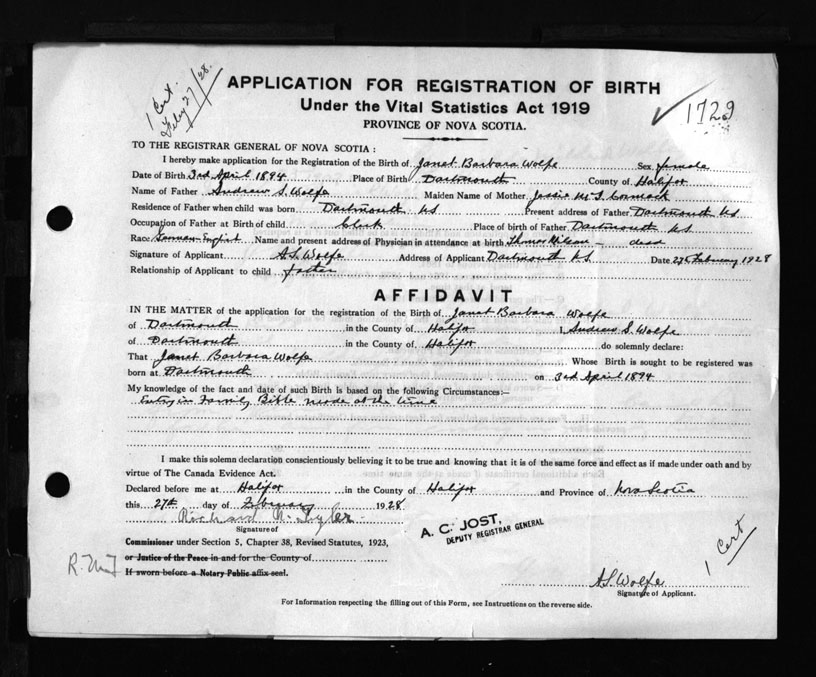 1 Cert.
Feby 27/28.
APPLICATION FOR REGISTRATION OF BIRTH
Under the Vital Statistics Act 1919
PROVINCE OF NOVA SCOTIA.
✓ 1729
TO THE REGISTRAR GENERAL OF NOVA SCOTIA:
I hereby make application for the Registration of the Birth of Janet Barbara Wolfe Sex female
Date of Birth 3rd April 1894 Place of Birth Dartmouth County of Halifax
Name of Father Andrew S. Wolfe Maiden Name of Mother Jessie McCormack
Residence of Father when child was born Dartmouth NS Present address of Father Dartmouth NS
Occupation of Father at Birth of child Clerk Place of birth of Father Dartmouth NS
Race German-English Name and present address of Physician in attendance at birth Thomas Milsom – dead
Signature of Applicant A S. Wolfe Address of Applicant Dartmouth NS Date 27th February 1928
Relationship of Applicant to child father
AFFIDAVIT
IN THE MATTER of the application for the registration of the Birth of Janet Barbara Wolfe
of Dartmouth in the County of Halifax I Andrew S. Wolfe
of Dartmouth in the County of Halifax do solemnly declare:
That Janet Barbara Wolfe Whose Birth is sought to be registered was
born at Dartmouth on 3rd April 1894
My knowledge of the fact and date of such Birth is based on the following Circumstances:—
Entry in Family Bible made at the time
I make this solemn declaration conscientiously believing it to be true and knowing that it is of the same force and effect as if made under oath and by
virtue of The Canada Evidence Act.
Declared before me at Halifax in the County of Halifax and Province of Nova Scotia
this 27th day of February 1928
Richard
Signature of
A. C. JOST,
DEPUTY REGISTRAR GENERAL
Commissioner under Section 5, Chapter 38, Revised Statutes, 1923,
or Justice of the Peace in and for the County of
If sworn before a Notary Public affix seal.
1 Cert
A S Wolfe
Signature of Applicant.
For Information respecting the filling out of this Form, see Instructions on the reverse side.